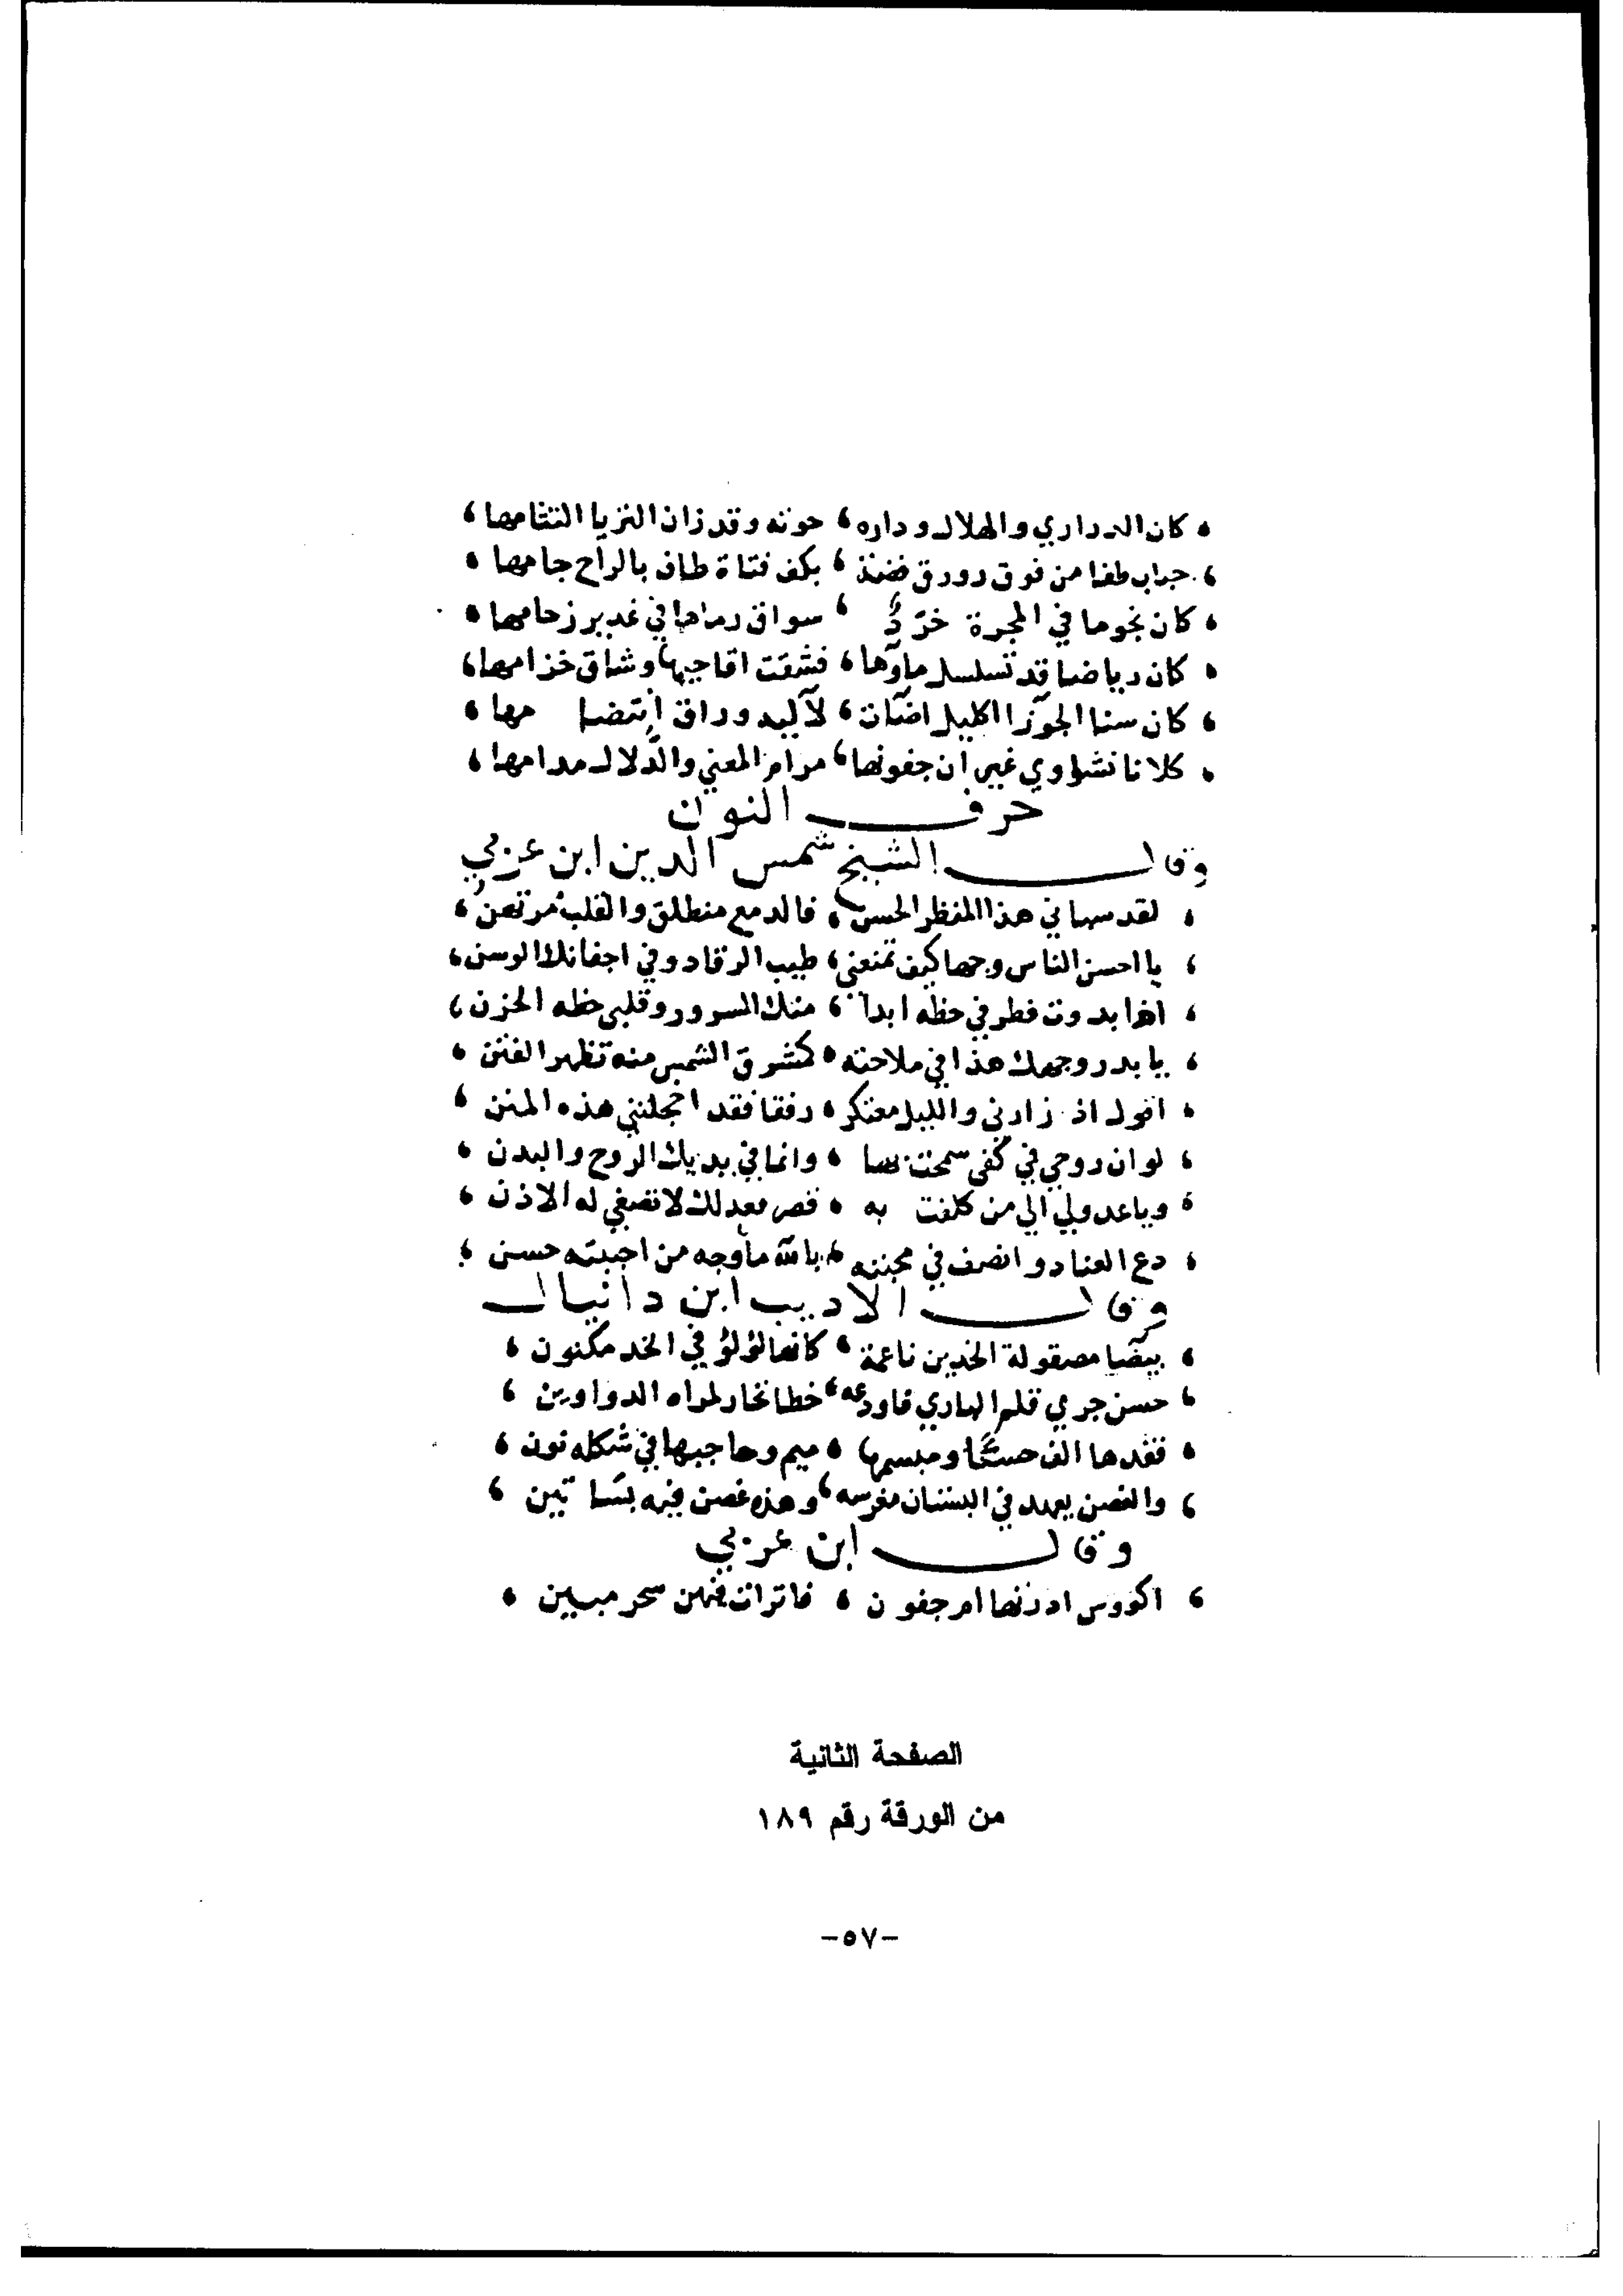 كان الدراري والهلال وداره، حوته وقد زان الثريا التثامها،
حباب طفا من فوق زورق فضة، بكف فتاة طاف بالراح جامها،
كان نجوما في المجرة خرّدٌ، سواق رماها في غدير زحامها،
كان رياضا قد تسلسل ماوها، فشقت اقاحيها وشاق خزامها،
كان سنا الجوزا اكليل لآليه وراق انتضا مها،
كلانا نشاوي غير ان جفونها، مرام المعني والدلال مدامها،
حرف النون
وقال الشيخ شمس الدين ابن عربي
لقد سها في هذا المنظر الحسن، فالدمع منطلق والقلب مرتهن،
يا احسن الناس وجها كيف تمنعني، طيب الرقاد وفي اجفانك الوسن،
اذا بدوت فطرفي حظه ابدا، منك السرور وقلبي حظه الحزن،
يا بدر وجهك هذا في ملاحته، كشرق الشمس منه تظهر الفتن،
اقول اذ زارني والليل معتكر، رفقا فقد اخجلتني هذه المنن،
لو ان روحي في كفي سمحت بها، وانما في يديك الروح والبدن،
وياعدولي الي من كلفت به، فصر معدلك لا تصغي له الاذن،
دع العناد وانصف في محبته، بالله ما وجه من احببته حسن،
وقال الاديب ابن دانيال
بيضا مصقولة الخدين ناعمة، كانها لؤلؤ في الخد مكنون،
حسن جري قلم الباري فاودعه، خطا تحار لمراه الدواوين،
فقدها الف حسنًا ومبسمها، ميم وحاجبها في شكله نون،
والغصن يعهد في البستان مغرسه، وهذه غصن فيه بسا تين،
وقال ابن عربي
اكووس ادرنها ام جفون، فاترات فيهن سحر مبين،
الصفحة الثانية
من الورقة رقم ١٨٩
-٥٧-